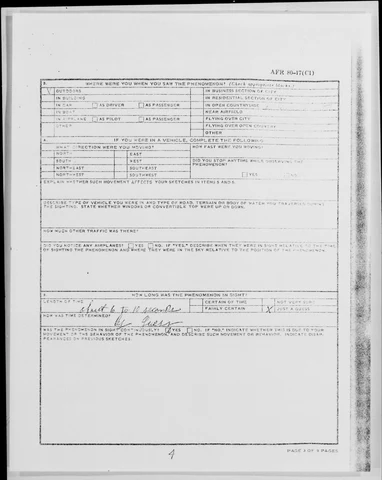 AFR 80-17(C1)
WHERE WERE YOU WHEN YOU SAW THE PHENOMENON? (Check appropriate blocks)
OUTDOORS
IN BUILDING
IN CAR AS DRIVER AS PASSENGER
IN BOAT
IN AIRPLANE AS PILOT AS PASSENGER
OTHER
IN BUSINESS SECTION OF CITY
IN RESIDENTIAL SECTION OF CITY
IN OPEN COUNTRYSIDE
NEAR AIRFIELD
FLYING OVER CITY
FLYING OVER OPEN COUNTRY
OTHER
IF YOU WERE IN A VEHICLE, COMPLETE THE FOLLOWING
WHAT DIRECTION WERE YOU MOVING?
HOW FAST WERE YOU MOVING?
NORTH EAST
SOUTH WEST
NORTHEAST SOUTHEAST
NORTHWEST SOUTHWEST
DID YOU STOP ANYTIME WHILE OBSERVING THE PHENOMENON?
YES NO
EXPLAIN WHETHER SUCH MOVEMENT AFFECTS YOUR SKETCHES IN ITEMS
DESCRIBE TYPE OF VEHICLE YOU WERE IN AND TYPE OF ROAD, TERRAIN OR BODY OF WATER YOU TRAVERSED DURING
THE SIGHTING. STATE WHETHER WINDOWS OR CONVERTIBLE TOP WERE UP OR DOWN.
HOW MUCH OTHER TRAFFIC WAS THERE?
DID YOU NOTICE ANY AIRPLANES? YES NO. IF "YES," DESCRIBE WHEN THEY WERE IN SIGHT RELATIVE TO THE TIME
OF SIGHTING THE PHENOMENON AND WHERE THEY WERE IN THE SKY RELATIVE TO THE POSITION OF THE PHENOMENON.
HOW LONG WAS THE PHENOMENON IN SIGHT?
LENGTH OF TIME
CERTAIN OF TIME
NOT VERY SURE
FAIRLY CERTAIN
X JUST A GUESS
HOW WAS TIME DETERMINED?
WAS THE PHENOMENON IN SIGHT CONTINUOUSLY? YES NO. IF "NO," INDICATE WHETHER THIS IS DUE TO YOUR
MOVEMENT OR THE BEHAVIOR OF THE PHENOMENON, AND DESCRIBE SUCH MOVEMENT OR BEHAVIOR. INDICATE DISAP-
PEARANCES ON PREVIOUS SKETCHES.
4
PAGE 4 OF 9 PAGES